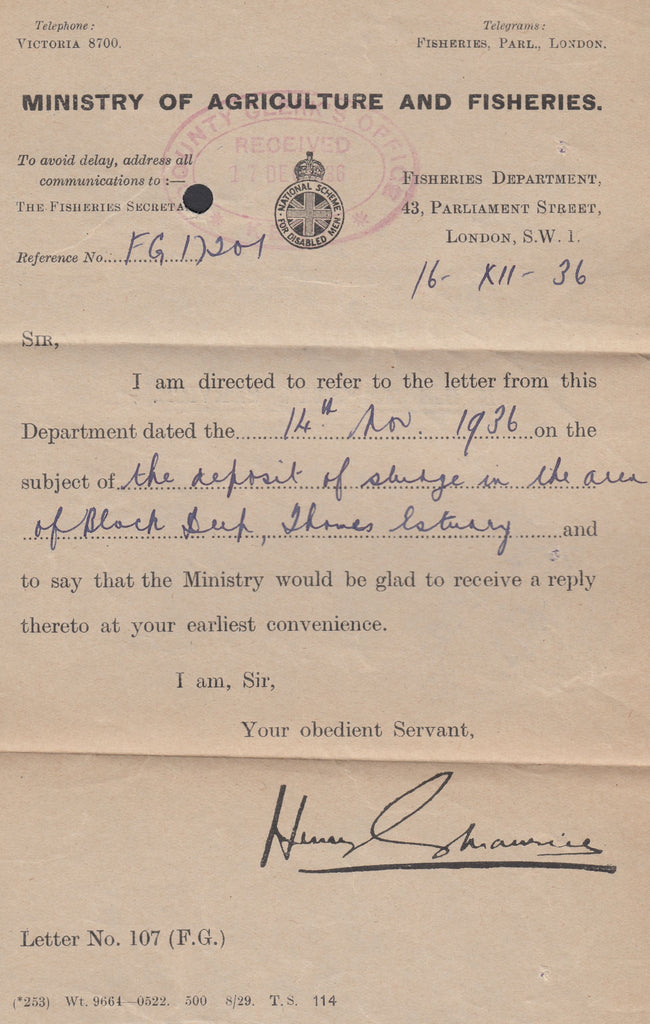 Telephone: Telegrams:
VICTORIA 8700. FISHERIES, PARL., LONDON.
MINISTRY OF AGRICULTURE AND FISHERIES.
COUNTY CLERK'S OFFICE
RECEIVED
17 DE 36
To avoid delay, address all
communications to :—
THE FISHERIES SECRETA
NATIONAL SCHEME
FOR DISABLED MEN
FISHERIES DEPARTMENT,
43, PARLIAMENT STREET,
LONDON, S.W. 1.
Reference No. FG 17201
16- XII- 36
SIR,
I am directed to refer to the letter from this
Department dated the 14th Nov. 1936 on the
subject of the deposit of sludge in the area
of Black Deep, Thames Estuary and
to say that the Ministry would be glad to receive a reply
thereto at your earliest convenience.
I am, Sir,
Your obedient Servant,
Henry G Maurice
Letter No. 107 (F.G.)
(*253) Wt. 9664—0522. 500 8/29. T.S. 114